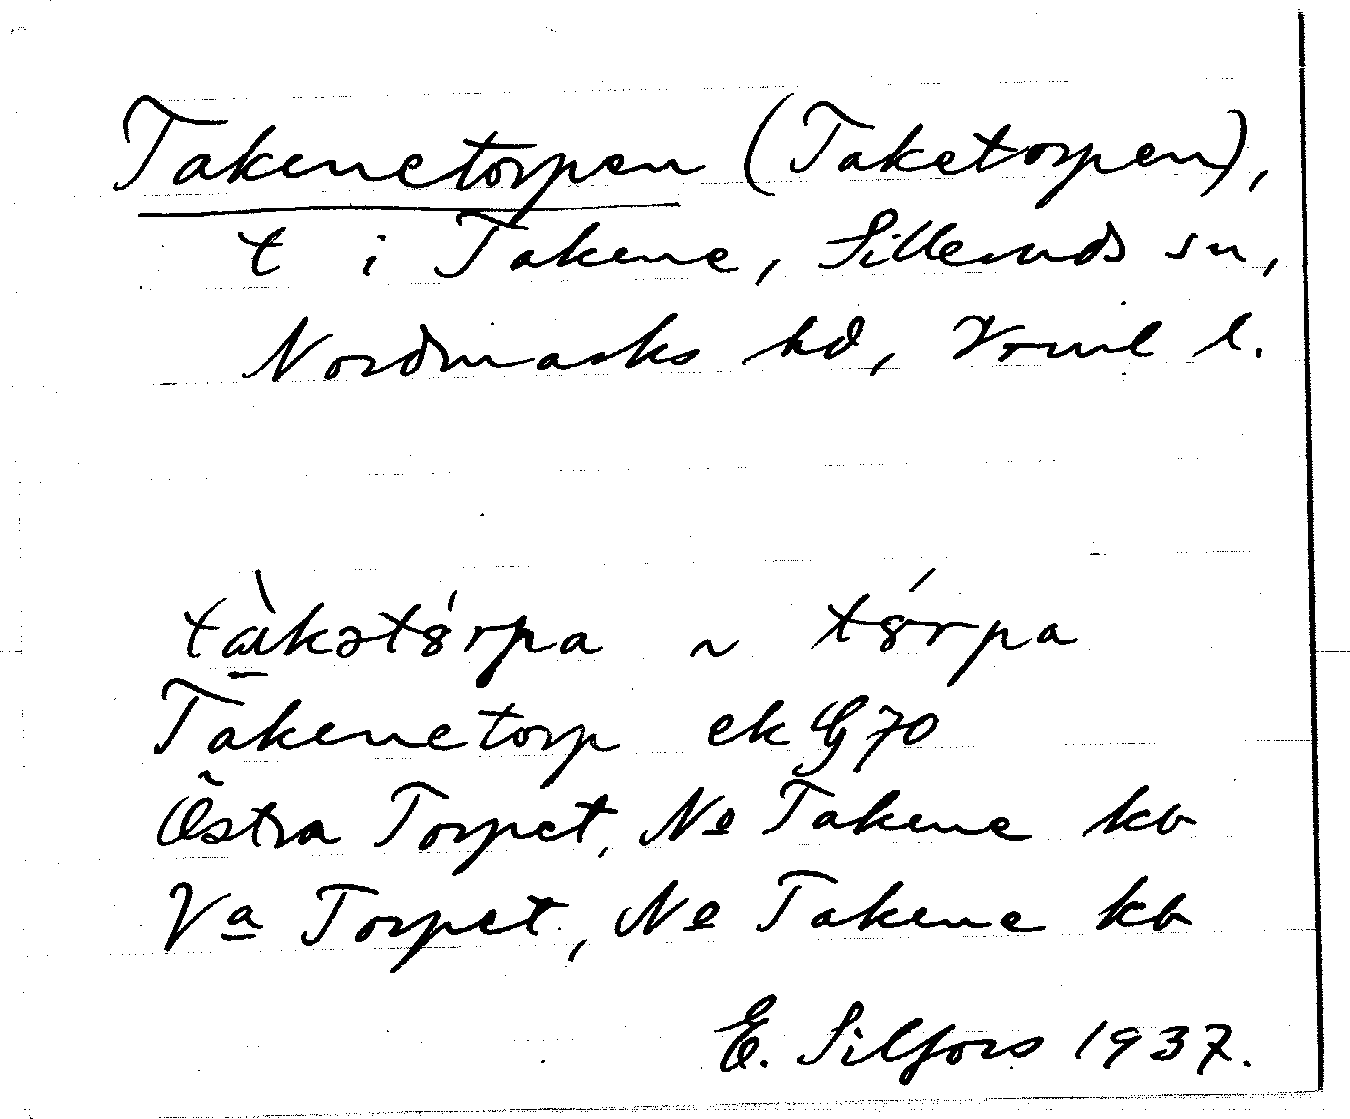 Takenetorpen (Taketorpen),
t i Takene, Silleruds sn,
Nordmarks hd, Vrml l.
tàkət8́rpa ~ t8́rpa
Takenetorp ek G 70
Östra Torpet, Ne Takene kb
Va Torpet, Ne Takene kb
E. Silfors 1937.